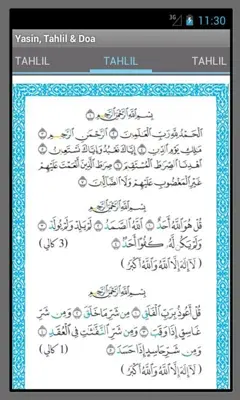 3G 11:30
Yasin, Tahlil & Doa
TAHLIL TAHLIL TAHLIL
بِسْمِ اللَّهِ الرَّحْمَٰنِ الرَّحِيمِ ۝١
الْحَمْدُ لِلَّهِ رَبِّ الْعَٰلَمِينَ ۝٢ الرَّحْمَٰنِ الرَّحِيمِ ۝٣
مَٰلِكِ يَوْمِ الدِّينِ ۝٤ إِيَّاكَ نَعْبُدُ وَإِيَّاكَ نَسْتَعِينُ ۝٥
اهْدِنَا الصِّرَٰطَ الْمُسْتَقِيمَ ۝٦ صِرَٰطَ الَّذِينَ أَنْعَمْتَ عَلَيْهِمْ
غَيْرِ الْمَغْضُوبِ عَلَيْهِمْ وَلَا الضَّالِّينَ ۝٧
بِسْمِ اللَّهِ الرَّحْمَٰنِ الرَّحِيمِ
قُلْ هُوَ اللَّهُ أَحَدٌ ۝١ اللَّهُ الصَّمَدُ ۝٢ لَمْ يَلِدْ وَلَمْ يُولَدْ ۝٣
وَلَمْ يَكُنْ لَهُ كُفُوًا أَحَدٌ ۝٤ (3 كالي)
(لَا إِلٰهَ إِلَّا اللَّهُ وَاللَّهُ أَكْبَرُ)
بِسْمِ اللَّهِ الرَّحْمَٰنِ الرَّحِيمِ
قُلْ أَعُوذُ بِرَبِّ الْفَلَقِ ۝١ مِنْ شَرِّ مَا خَلَقَ ۝٢ وَمِنْ شَرِّ
غَاسِقٍ إِذَا وَقَبَ ۝٣ وَمِنْ شَرِّ النَّفَّٰثَٰتِ فِي الْعُقَدِ ۝٤
وَمِنْ شَرِّ حَاسِدٍ إِذَا حَسَدَ ۝٥ (1 كالي)
(لَا إِلٰهَ إِلَّا اللَّهُ وَاللَّهُ أَكْبَرُ)